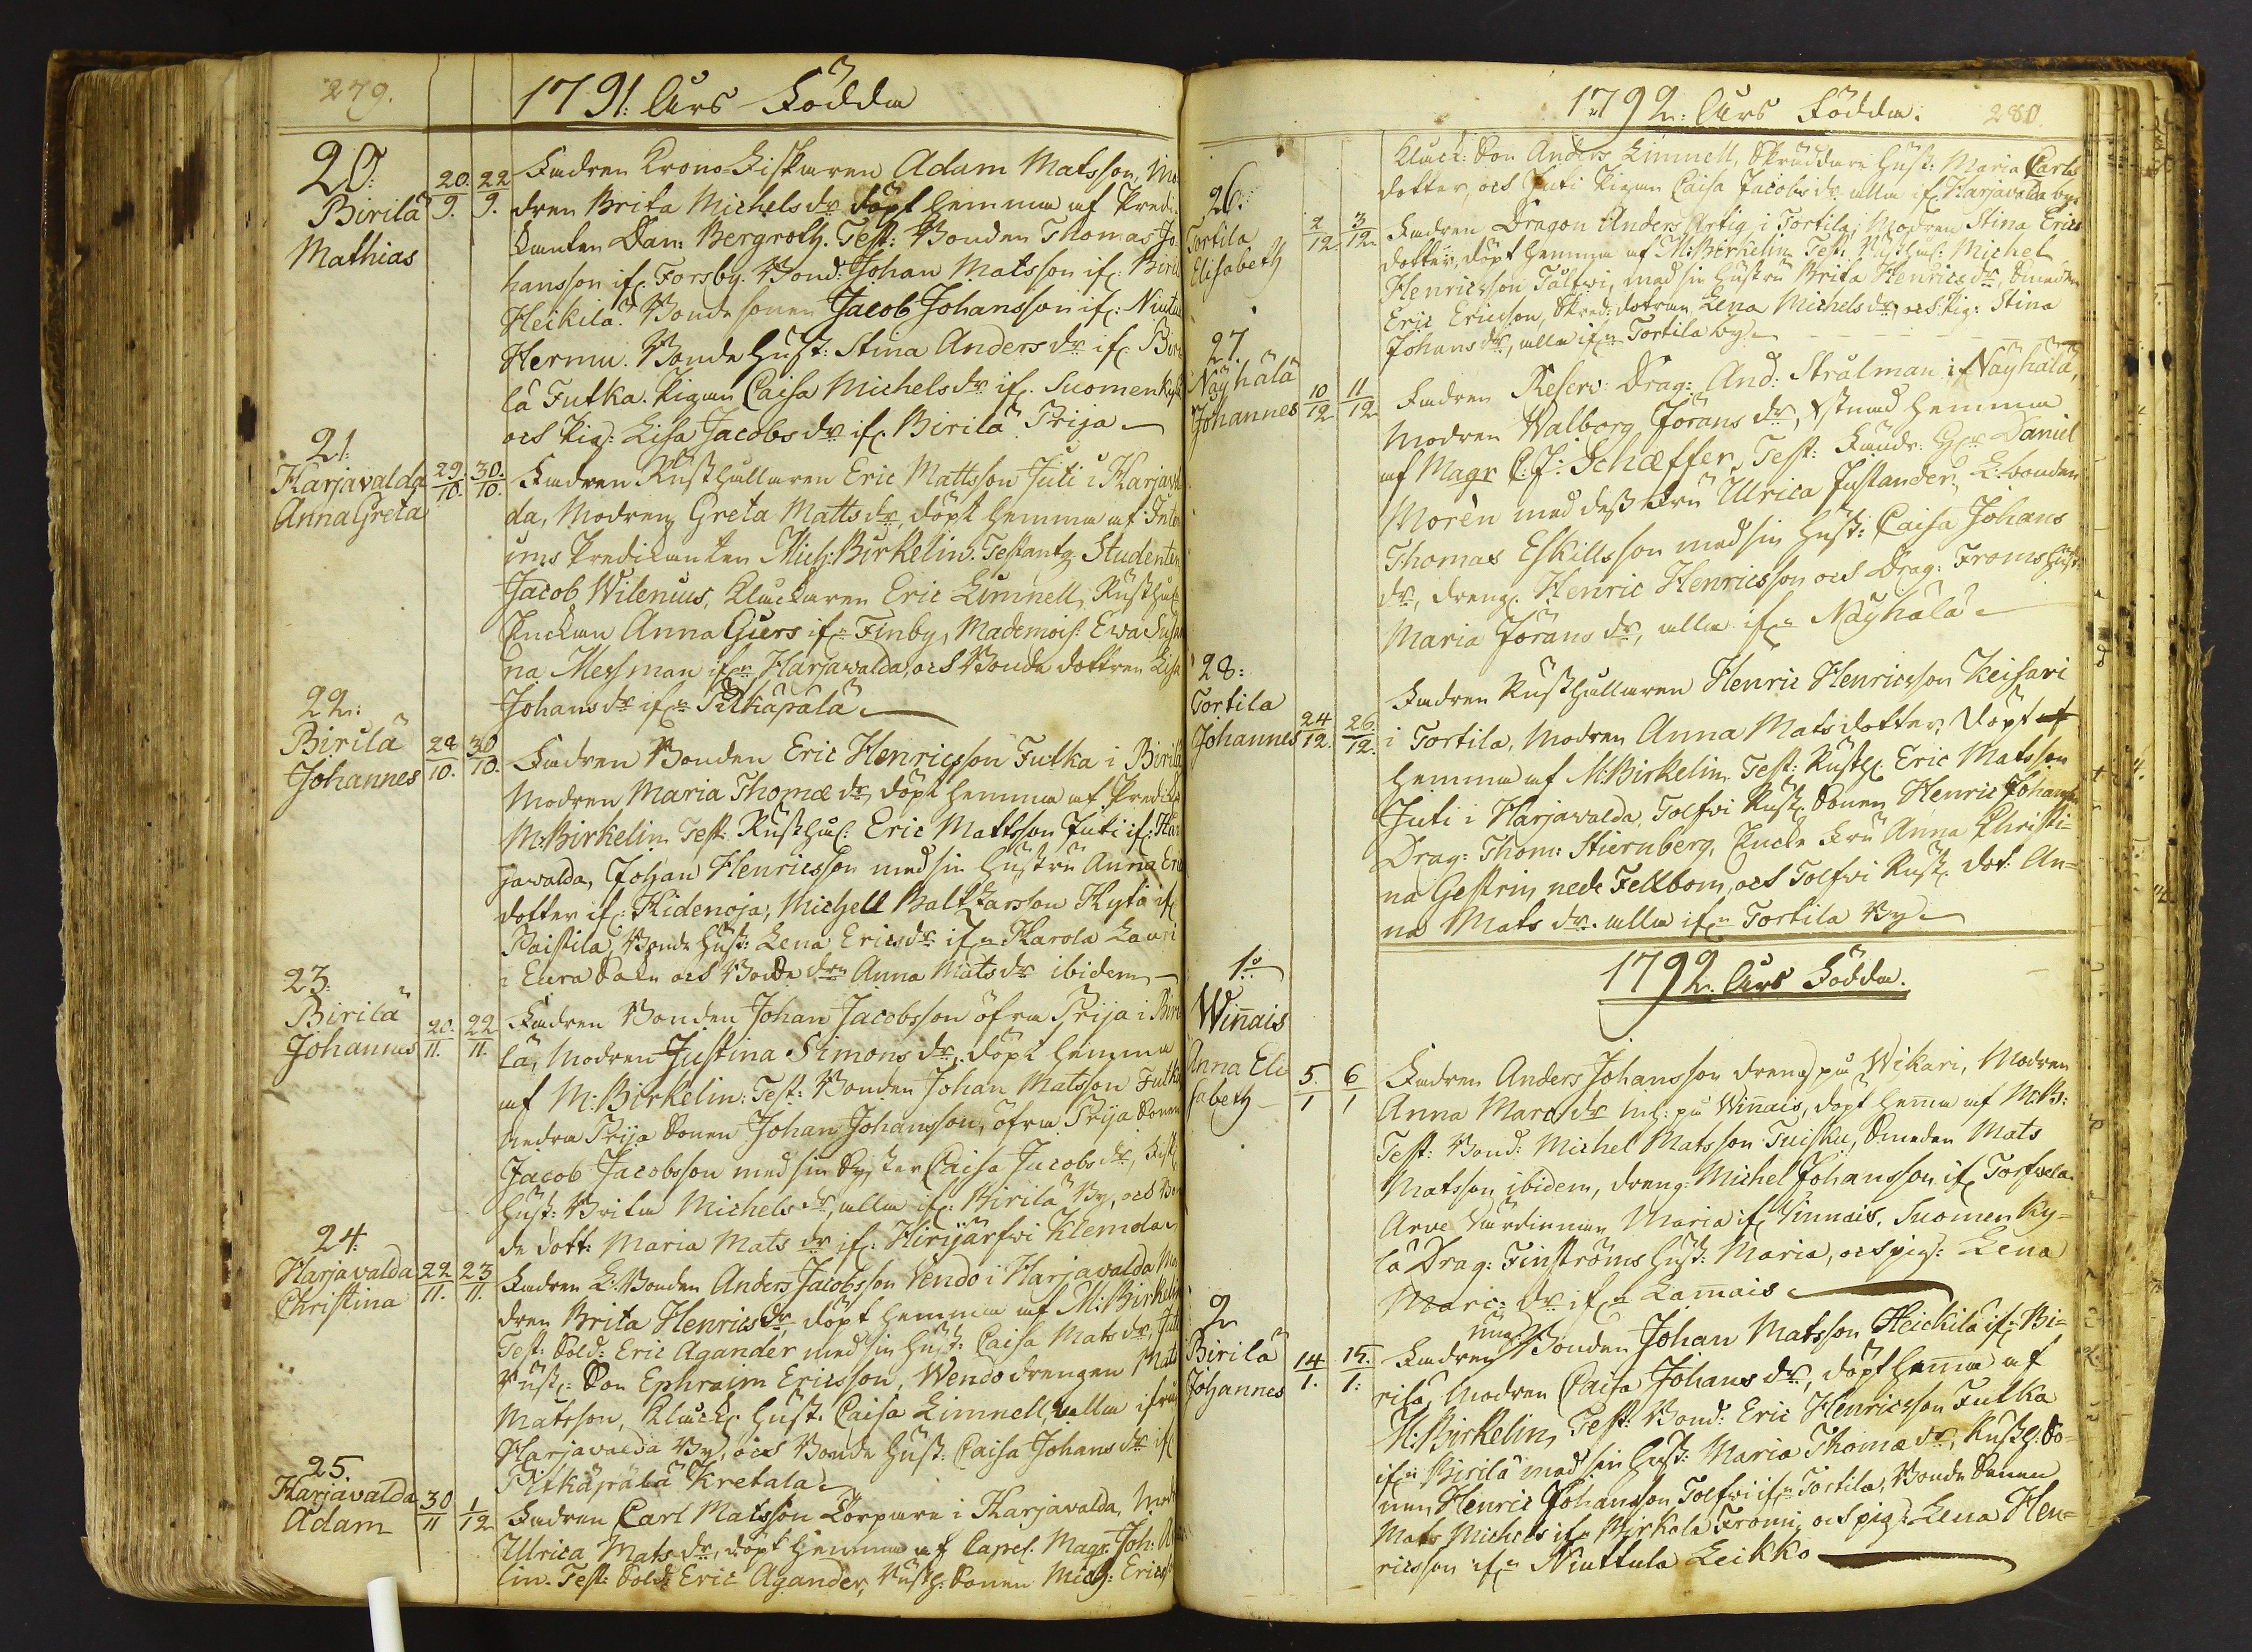 279.
1791: Års Födda
20:
Birilä
Mathias
20. 22
9. 9.
Fadren Krono-Fiskaren Adam Matsson, Mo-
dren Brita Michels dr döpt hemma af Predi-
kanten Dan: Bergroth. Test: Bonden Thomas Jo-
hansson ifr. Forsby. Bond: Johan Matsson ifr: Biril
Heikilä. Bonde sonen Jacob Johansson ifr: Niutu
Hermu. Bonde Hust: Stina Anders dr ifr. Biri
lä Futka. Pigan Caisa Michels dr ifr. Suomenkyl
och Pig: Lisa Jacobs dr ifr. Birilä Prija
21:
Harjavalda
Anna Greta
29. 30.
10. 10.
Fadren Rusthållaren Eric Mattsson Juti i Harjaval
da, Modren Greta Matts dr, döpt hemma af Inter
ims Predikanten Mich: Birkelin. Testantr: Studenten
Jacob Wilenius, Kluckaren Eric Limnell, Rusthål
Enckan Anna Giers ifrn Finby, Mademois: Ewa Susa
na Mesman ifrn Harjavalda, och Bonde dottren Lisa
Johans dr ifrn Pitkäpälä
22:
Birilä
Johannes
28 30
10. 10.
Fadren Bonden Eric Henricsson Futka i Birilä
Modren Maria Thomæ dr, döpt hemma af Predik
M: Birkelin Test: Rusthål: Eric Mattsson Juti ifr: Har
javalda, Johan Henricsson med sin hustru Anna Eric
dotter ifr: Hidenoja, Michell Baltzarsson Kytä ifr
Paistila, Bonde Hust: Lena Erics dr ifrn Karola Lauri
i Eura Sokn och Bonde dr Anna Mats dr ibidem
23:
Birilä
Johannes
20. 22
11. 11.
Fadren Bonden Johan Jacobsson öfra Prija i Biri
lä, Modren Justina Simons dr, döpt hemma
af M: Birkelin: Test: Bonden Johan Matsson Futka
nedra Prija Sonen Johan Johansson, öfra Prija Sonen
Jacob Jacobsson med sin Syster Caisa Jacobs dr, Fisk
Hust: Brita Michels dr, alla ifr: Birilä By, och Bon
de dott: Maria Mats dr ifr: Hirijärfvi Klemola
24:
Harjavalda
Christina
22 23
11. 11.
Fadren L: Bonden Anders Jacobsson Vendo i Harjavalda Mo
dren Brita Henrics dr, döpt hemma af M: Birkelin
Test: Sold: Eric Agander med sin Hust: Caisa Mats dr, Juti
Rust: Son Ephraim Ericsson, Wendo drengen Mats
Matsson, Kluck: Hust: Caisa Limnell, alla ifrån
Harjavalda By, och Bonde Hust: Caisa Johans dr ifr
Pitkäpälä Kretala
25.
Harjavalda
Adam
30 1
11 12
Fadren Carl Matsson Torpare i Harjavalda, Modr
Ulrica Mats dr, döpt hemma af Capel. Magr. Joh: A
lin. Test: Sold: Eric Agander, Rusth: Sonen Mich: Ericss
1792: Års Födda:
280
Kluck: Son Anders Limnell, Skräddare Hust: Maria Carls
dotter, och Juti Pigan Caisa Jacobs dr alla ifr Harjavalda by.
26:
Tortila
Elisabeth
2 3
12 12
Fadren Dragon Anders Artig i Tortila, Modren Stina Erics
dotter, döpt hemma af M: Birkelin Test: Rusthål: Michel
Henricsson Tulfvi, med sin Hustru Brita Henrics dr, Smeden
Eric Ericsson, Skred: dotran Lena Michels dr, och Pig: Stina
Johans dr, alla ifrn Tortila by.
27.
Näyhälä
Johannes
10 11
12 12
Fadren Reserv: Drag: And: Strålman if Näyhälä,
Modren Walborg Jörans dr, Christnad hemma
af Magr C. J. Schæffer, Test: Fendr: Hr Daniel
Morèn med dess Fru Ulrica Justander, L: bonden
Thomas Eskillsson med sin Hust: Caisa Johans
dr, dreng: Henric Henricsson och Drag: Froms Hust:
Maria Jörans dr, alla ifrn Näyhälä
28:
Tortila
Johannes
24 26
12. 12.
Fadren Rusthållaren Henric Henricsson Keisari
i Tortila, Modren Anna Matsdotter, döpt
hemma af M: Birkelin Test: Rusth: Eric Matsson
Juti i Harjavalda, Tolfvi Rust: Sonen Henric Johansson
Drag: Thom: Stiernberg, Encke Fru Anna Christi-
na Gestrin nede Fellbom, och Tolfvi Rust: dot: An-
na Mats dr. alla ifrn Tortila By
1792 Års Födda.
1:o
Win̄ais
Anna Eli
sabeth
5. 6
1 1
Fadren Anders Johansson dreng på Wikari, Modren
Anna Marc dr Inh: på Win̄ais, döpt hem̄a af M: B:
Test: Bond: Michel Matsson Tuisku, Smeden Mats
Matsson ibidem, dreng: Michel Johansson ifr Torfvela.
Arve Värdinnan Maria ifr Vinnais. Suomen Ky-
lä Drag: Finströms Hust: Maria, och pig: Lena
Marc: dr ifrn Lam̄ais
2
Birilä
Johannes
14 15.
1. 1:
ung:
Fadren Bonden Johan Matsson Heickilä ifrn Bi-
rilä, Modren Caisa Johans dr, döpt hem̄a af
M: Birkelin, Test: Bond: Eric Henricsson Futka
ifrn Birilä med sin Hust: Maria Thomæ dr, Rusth: So-
nen Henric Johansson Tolfvi ifrn Tortila, Bonde Sonen
Mats Michels ifrn Pirkala Fromi, och pig: Lena Hen-
ricsson ifrn Niuttula Leikko